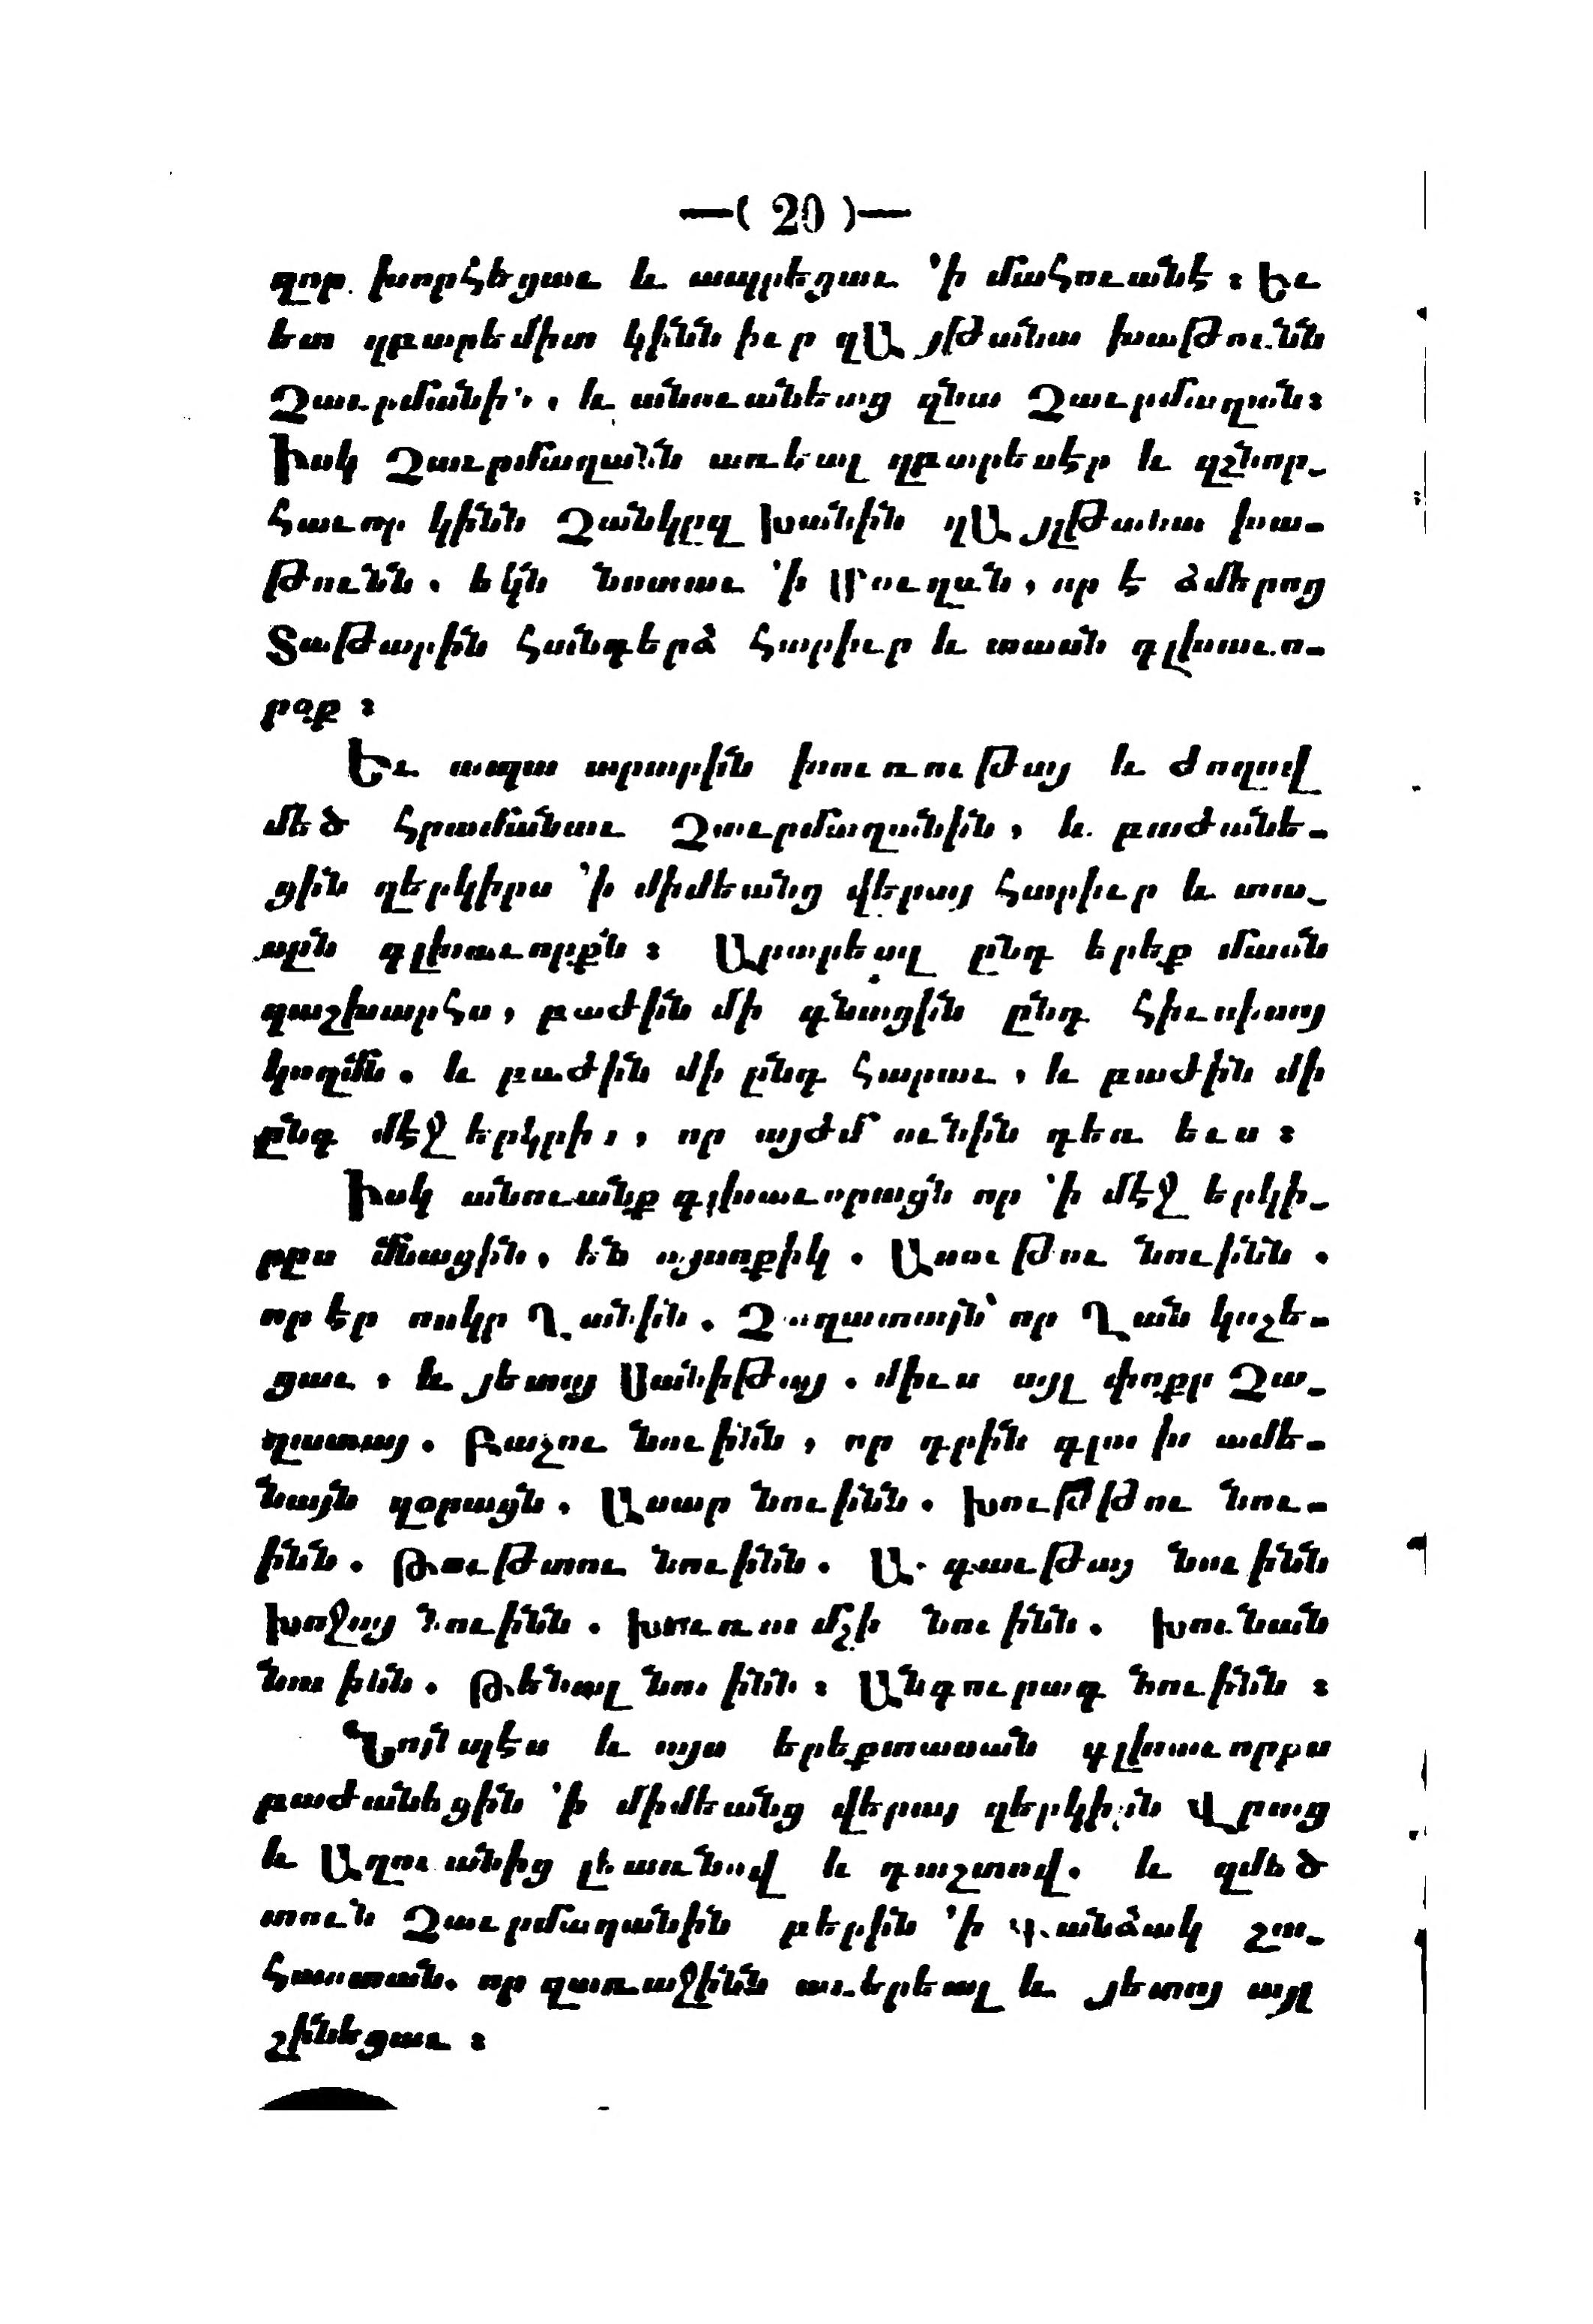 —( 20 )—
զոր խորհեցաւ և ապրեցաւ ՚ի մահուանէ։ Եւ
ետ զբարեմիտ կինն իւր զԱյթանա խաթունն
Չաւրմանին, և անուանեաց զնա Չաւրմաղան։
Իսկ Չաւրմաղանն առեալ զբարեսէր և զշնոր_
հաւոր կինն Չանկըզ խանին զԱյլթանա խա-
թունն. եկն նստաւ ՚ի Մուղան, որ է ձմերոց
Տաթարին հանգերձ հարիւր և տասն գլխաւո-
րօք։
Եւ ապա արարին խուռութայ և ժողով
մեծ հրամանաւ Չաւրմաղանին, և բաժանե-
ցին զերկիրս ՚ի միմեանց վերայ հարիւր և տա_
սըն գլխաւորքն։ Արարեալ ընդ երեք մասն
զաշխարհս, բաժին մի գնացին ընդ հիւսիսոյ
կողմն. և բաժին մի ընդ հարաւ, և բաժին մի
ընգ մէջ երկրիս, որ այժմ ունին դեռ ևս։
Իսկ անուանք գլխաւորացն որ ՚ի մէջ երկի_
րըս մնացին, են այսոքիկ. Ասութու նուինն.
որ էր ոսկր Ղանին. Չաղատայն՝ որ Ղան կոչե-
ցաւ, և յետոյ Սանիթայ. միւս այլ փոքր Չա_
ղատայ. Բաչու նուինն, որ դրին գլուխ ամե-
նայն զօրացն, Ասար նուինն. Խութթու նու-
ինն. Թութտու նուինն. Ագաւթայ նուինն
Խոջայ նուինն. Խուռումշի նուինն. Խունան
նուինն. Թենալ նուինն։ Անգուրագ նուինն։
Նոյնպէս և այս երեքտասան գլխաւորքս
բաժանեցին ՚ի միմեանց վերայ զերկիրն Վրաց
և Աղուանից լեառնով և դաշտով. և զմեծ
տուն Չաւրմաղանին բերին ՚ի Գանձակ շա_
հաստան. որ զառաջինն աւերեալ և յետոյ այլ
շինեցաւ։